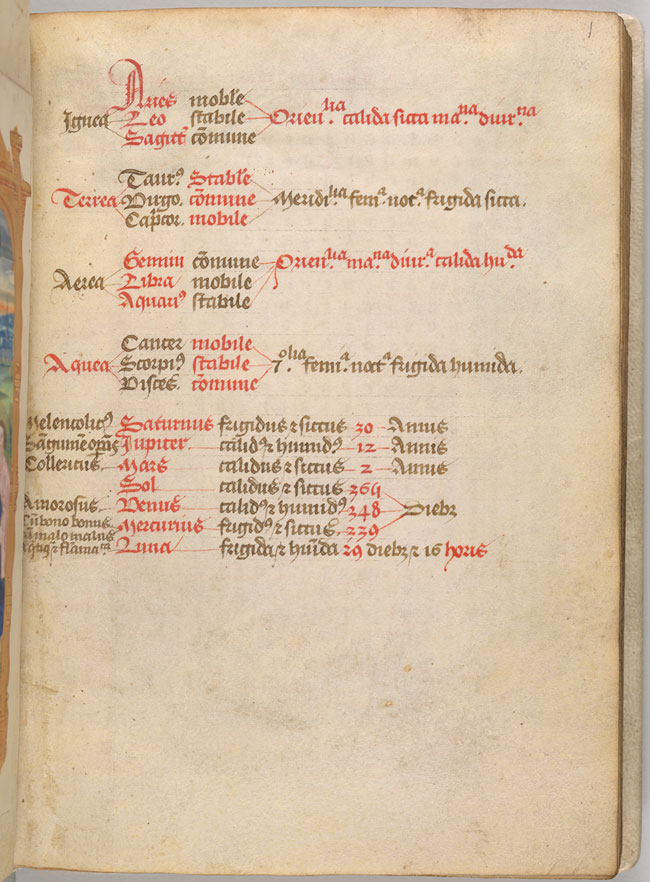 1
Aries moble
Ignea Leo stabile Orien.lia calida sicca ma.na diur.na
Sagitt̃ cõmune
Taurꝰ Stable
Terrea Virgo. cõmune Meridi.lia femi.a noc.a frigida sicca.
Cap̃cor. mobile
Gemini cõmune Orien.lia ma.na diur.a calida hu.da
Aerea Libra mobile
Aquariꝰ stabile
Cancer mobile
Aquea Scorpiꝰ stabile femi.a noct.a frigida humida.
Pisces. cõmune
Melencolicꝰ Saturnus frigidus ⁊ siccus 30 Annis
Jupiter calidꝰ ⁊ humidꝰ 12 Annis
Collericus Mars calidus ⁊ siccus 2 Annis
Sol calidus ⁊ siccus 364
Amorosus Venus calidꝰ ⁊ humidꝰ 348 Diebꝫ
Cũ bono bonus Mercurius frigidꝰ ⁊ siccus. 239
cũ malo malus
Luna frigida ⁊ hũida 29 diebꝫ ⁊ 16 horis